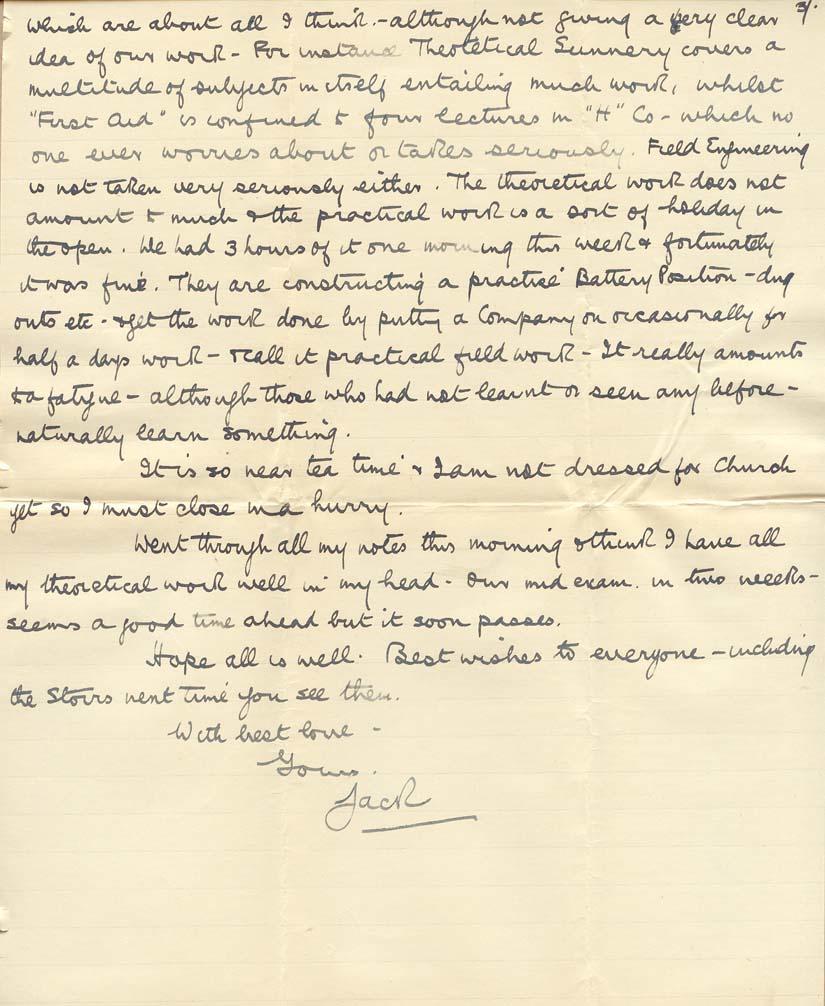 3/.
which are about all I think. - although not giving a very clear
idea of our work - For instance Theoretical Gunnery covers a
multitude of subjects in itself entailing much work, whilst
"First Aid" is confined to four lectures in "H" Co - which no
one ever worries about or takes seriously. Field Engineering
is not taken very seriously either. The theoretical work does not
amount to much & the practical work is a sort of holiday in
the open. We had 3 hours of it one morning this week & fortunately
it was fine. They are constructing a practise Battery Position - dug
outs etc - & get the work done by putting a Company on occasionally for
half a days work - & call it practical field work - It really amounts
to a fatigue - although those who had not learnt or seen any before -
naturally learn something.
It is so near tea time & I am not dressed for Church
yet so I must close in a hurry.
Went through all my notes this morning & think I have all
my theoretical work well in my head - Our mid exam. in two weeks -
seems a good time ahead but it soon passes.
Hope all is well. Best wishes to everyone - including
the next time you see them.
With best love -
Yours.
Jack